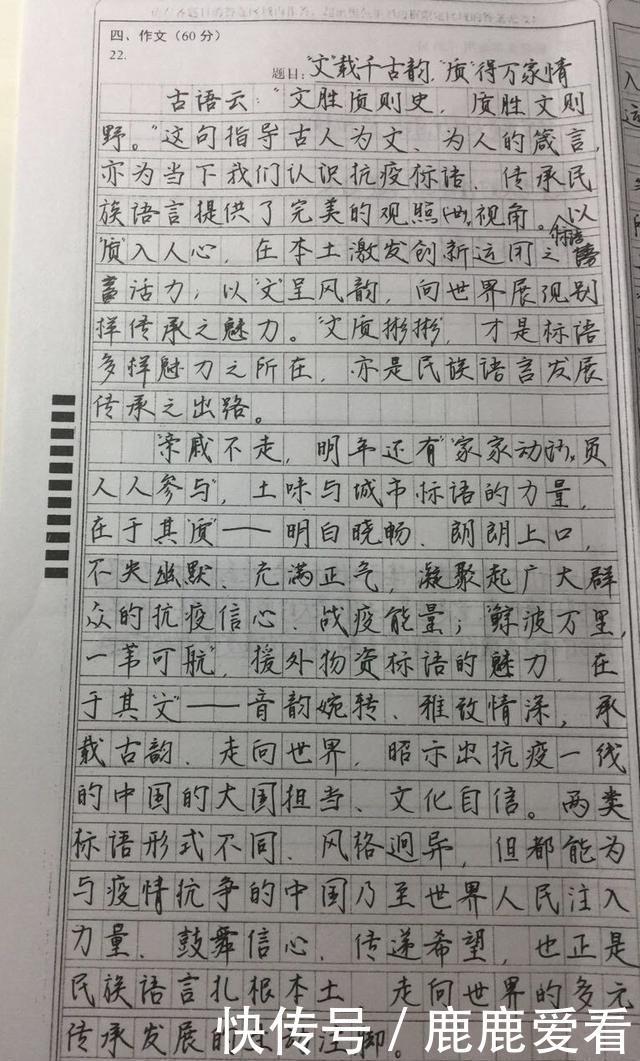 四、作文（60分）
22.
题目："文"载千古韵 "质"得万家情
古语云："文胜质则史，质胜文则
野。"这句指导古人为文、为人的箴言，
亦为当下我们认识抗疫标语、传承民
族语言提供了完美的观照视角。以
"质"入人心，在本土激发创新运用之标语
活力；以"文"呈风韵，向世界展现别
样传承之魅力。"文质彬彬"，才是标语
多样魅力之所在，亦是民族语言发展
传承之出路。
"亲戚不走，明年还有""家家动员，
人人参与"，土味与城市标语的力量，
在于其"质"——明白晓畅、朗朗上口，
不失幽默、充满正气，凝聚起广大群
众的抗疫信心、战疫能量；"鲸波万里，
一苇可航"，援外物资标语的魅力，在
于其"文"——音韵婉转、雅致情深，承
载古韵、走向世界，昭示出抗疫一线
的中国的大国担当、文化自信。两类
标语形式不同、风格迥异，但都能为
与疫情抗争的中国乃至世界人民注入
力量、鼓舞信心、传递希望，也正是
民族语言扎根本土 走向世界的多元
传承发展的 注脚。
快传号／鹿鹿爱看